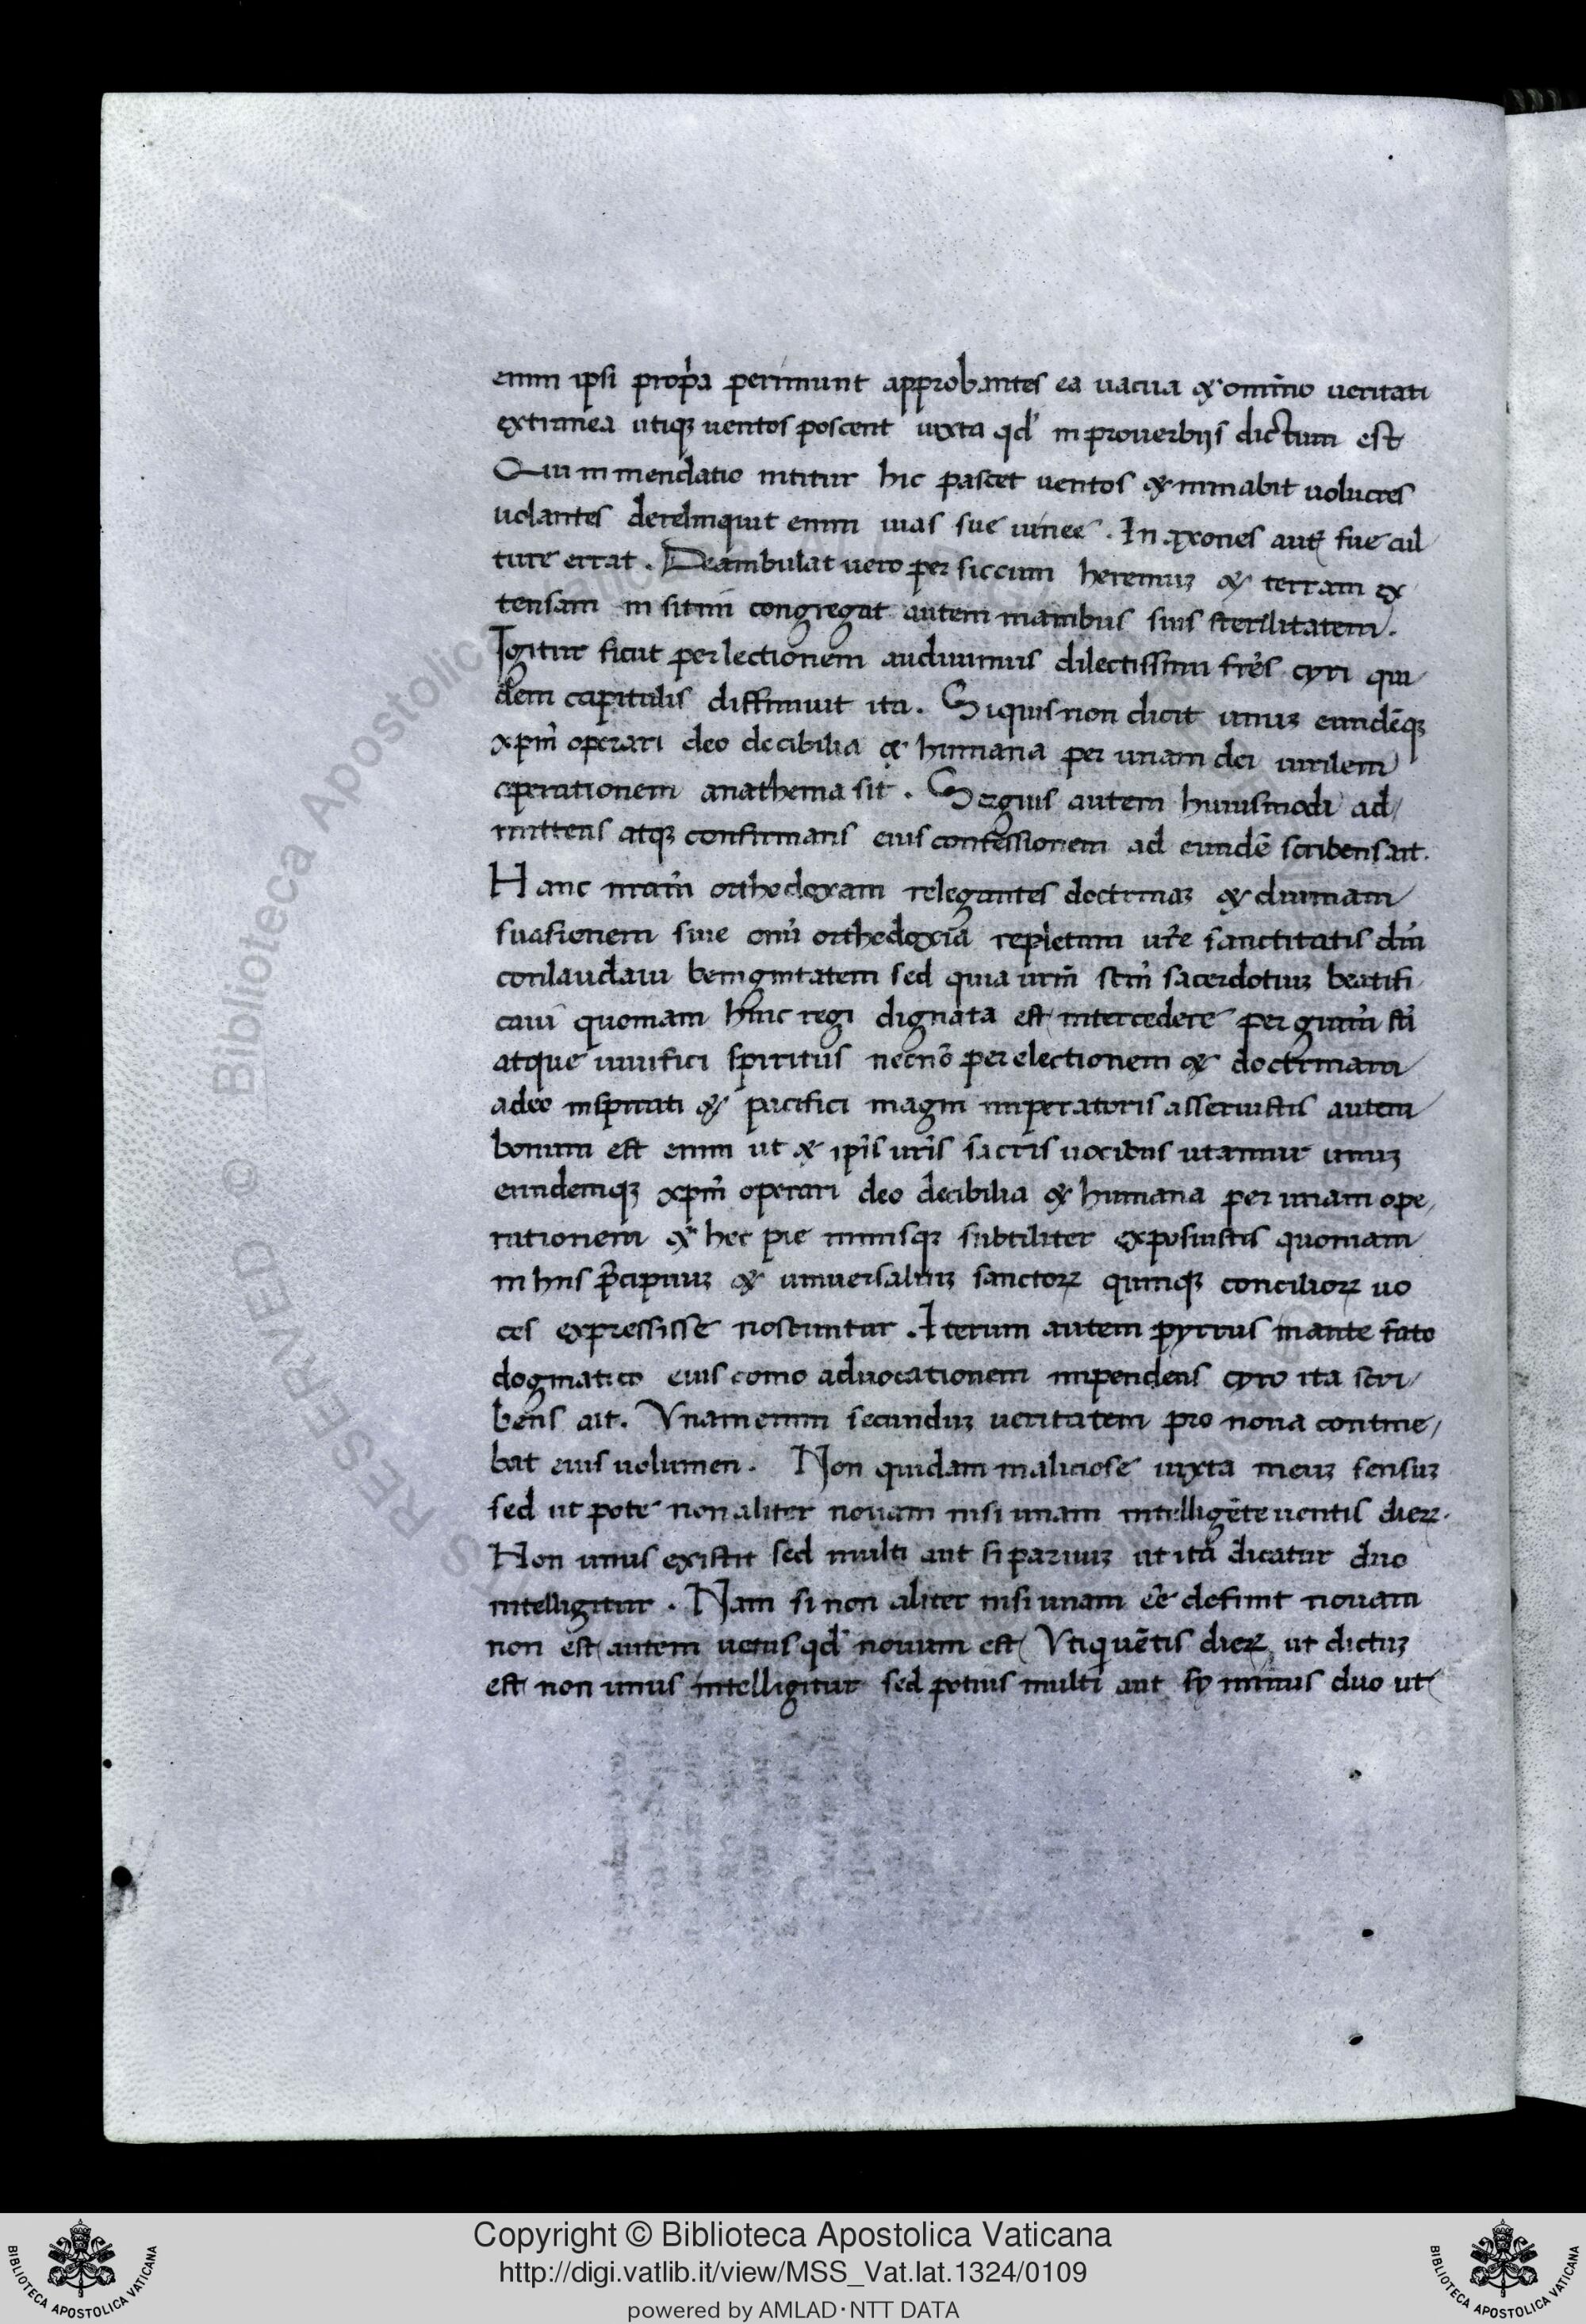 enim ipsi prop̃a perimunt approbantes ea uacua & omĩno ueritati
extranea utiqꝫ uentos poscent iuxta qd' in prouerbijs dictum est
Qui in mendatio nititur hic pascet uentos & minabit uolucres
uolantes derelinquit enim uias sue uinee. In axones aut̃ sue cul
ture errat. Deambulat uero per siccum heremuꝫ & terram ex
tensam in sitim congregat autem manibus suis sterilitatem.
Igitur sicut per lectionem audiuimus dilectissimi fr̃es cyri qui
dem capitulis diffiniuit ita. Siquis non dicit unuꝫ eundẽqꝫ
xp̃m operari deo decibilia & humana per unam dei uirilem
operationem anathema sit. Sergius autem huiusmodi ad
mittens atqꝫ confirmans eius confessionem ad eundẽ scribens ait.
Hanc nr̃am orthodoxam relegantes doctrinaꝫ & diuinam
suasionem siue om̃i orthodoxia repletum ur̃e sanctitatis dm̃
conlaudaui benignitatem sed quia ur̃m scm̃ sacerdotiuꝫ beatifi
caui quoniam hinc regi dignata est intercedere per gr̃am sc̃i
atque uiuifici spiritus necnõ per electionem & doctrinam
adeo inspirati & pacifici magni imperatoris asseruistis autem
bonum est enim ut & ip̃is ur̃is sacris uocibus utamur unuꝫ
eundemqꝫ xp̃m operari deo decibilia & humana per unam ope
rationem & hec pie nimisqꝫ subtiliter exposuistis quoniam
in hiis p̃cipuuꝫ & uniuersaliuꝫ sanctoꝝ quinqꝫ concilioꝝ uo
ces expressisse noscuntur. Iterum autem pyrrus in ante fato
dogmatico eius como aduocationem impendens cyro ita scri
bens ait. Vnam enim secunduꝫ ueritatem pro noua contine
bat eius uolumen. Non quidam maliciose iuxta meuꝫ sensuꝫ
sed ut pote non aliter nouam nisi unam intelligẽte uentis dieꝝ.
Non unus existit sed multi aut si paruuꝫ ut ita dicatur duo
intelligitur. Nam si non aliter nisi unam ẽe definit nouam
non est autem uetus qd' nouum est Vtiq uẽtis dieꝝ ut dictuꝫ
est non unus intelligitur sed potius multi aut sy minus duo ut
Copyright © Biblioteca Apostolica Vaticana
http://digi.vatlib.it/view/MSS_Vat.lat.1324/0109
powered by AMLAD·NTT DATA
BIBLIOTECA APOSTOLICA VATICANA
BIBLIOTECA APOSTOLICA VATICANA